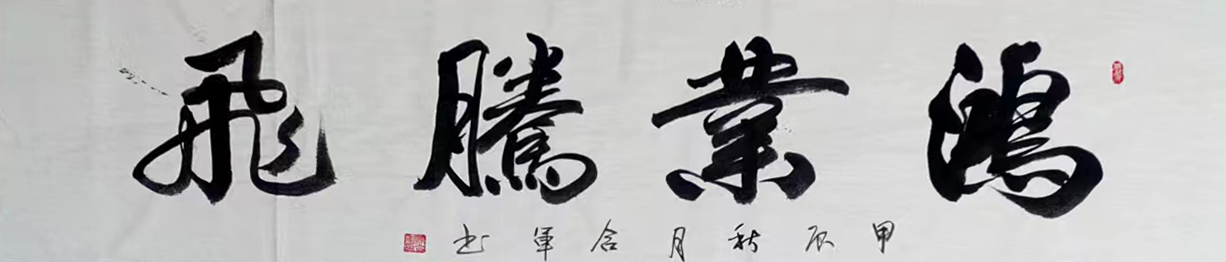 鴻業騰飛
甲辰秋月合軍书